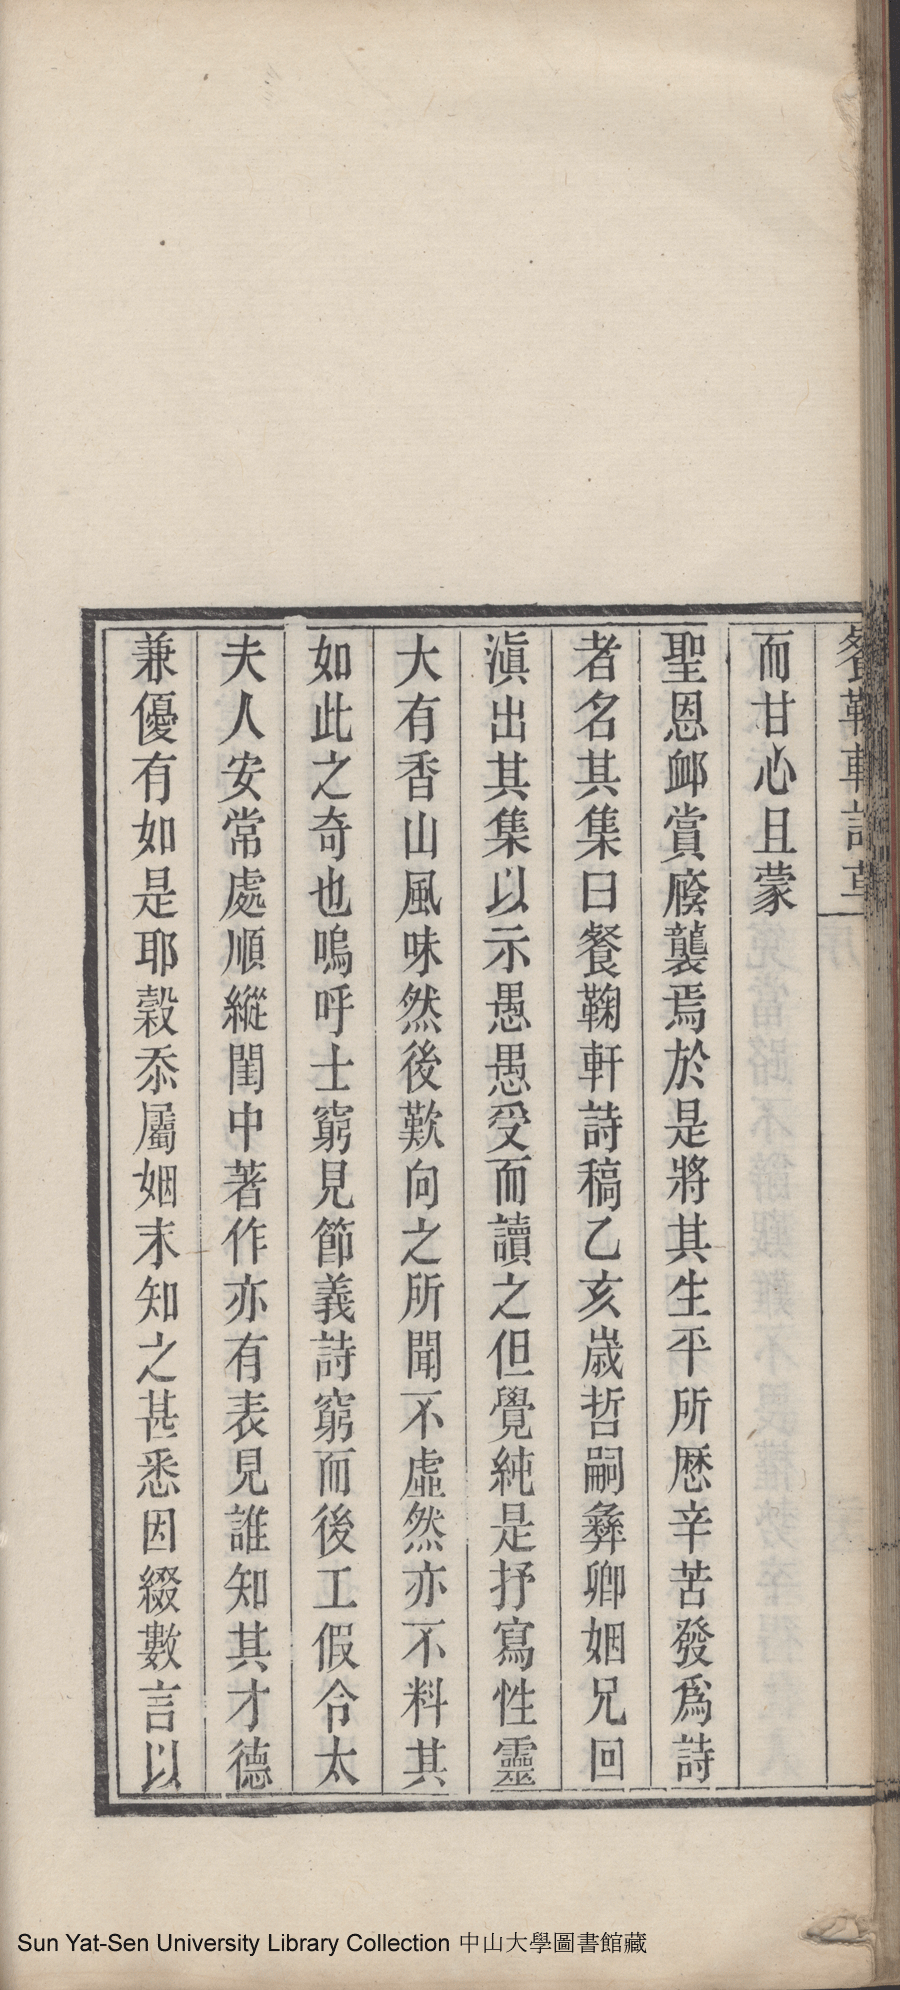 而甘心且蒙
聖恩卹賞廕襲焉於是將其生平所歷辛苦發爲詩
者名其集曰餐鞠軒詩稿乙亥嵗哲嗣彝卿姻兄回
滇出其集以示愚愚受而讀之但覺純是抒寫性靈
大有香山風味然後歎向之所聞不虛然亦不料其
如此之奇也嗚呼士窮見節義詩窮而後工假令太
夫人安常處順縱閨中著作亦有表見誰知其才德
兼優有如是耶榖忝屬姻末知之甚悉因綴數言以
Sun Yat-Sen University Library Collection 中山大學圖書館藏